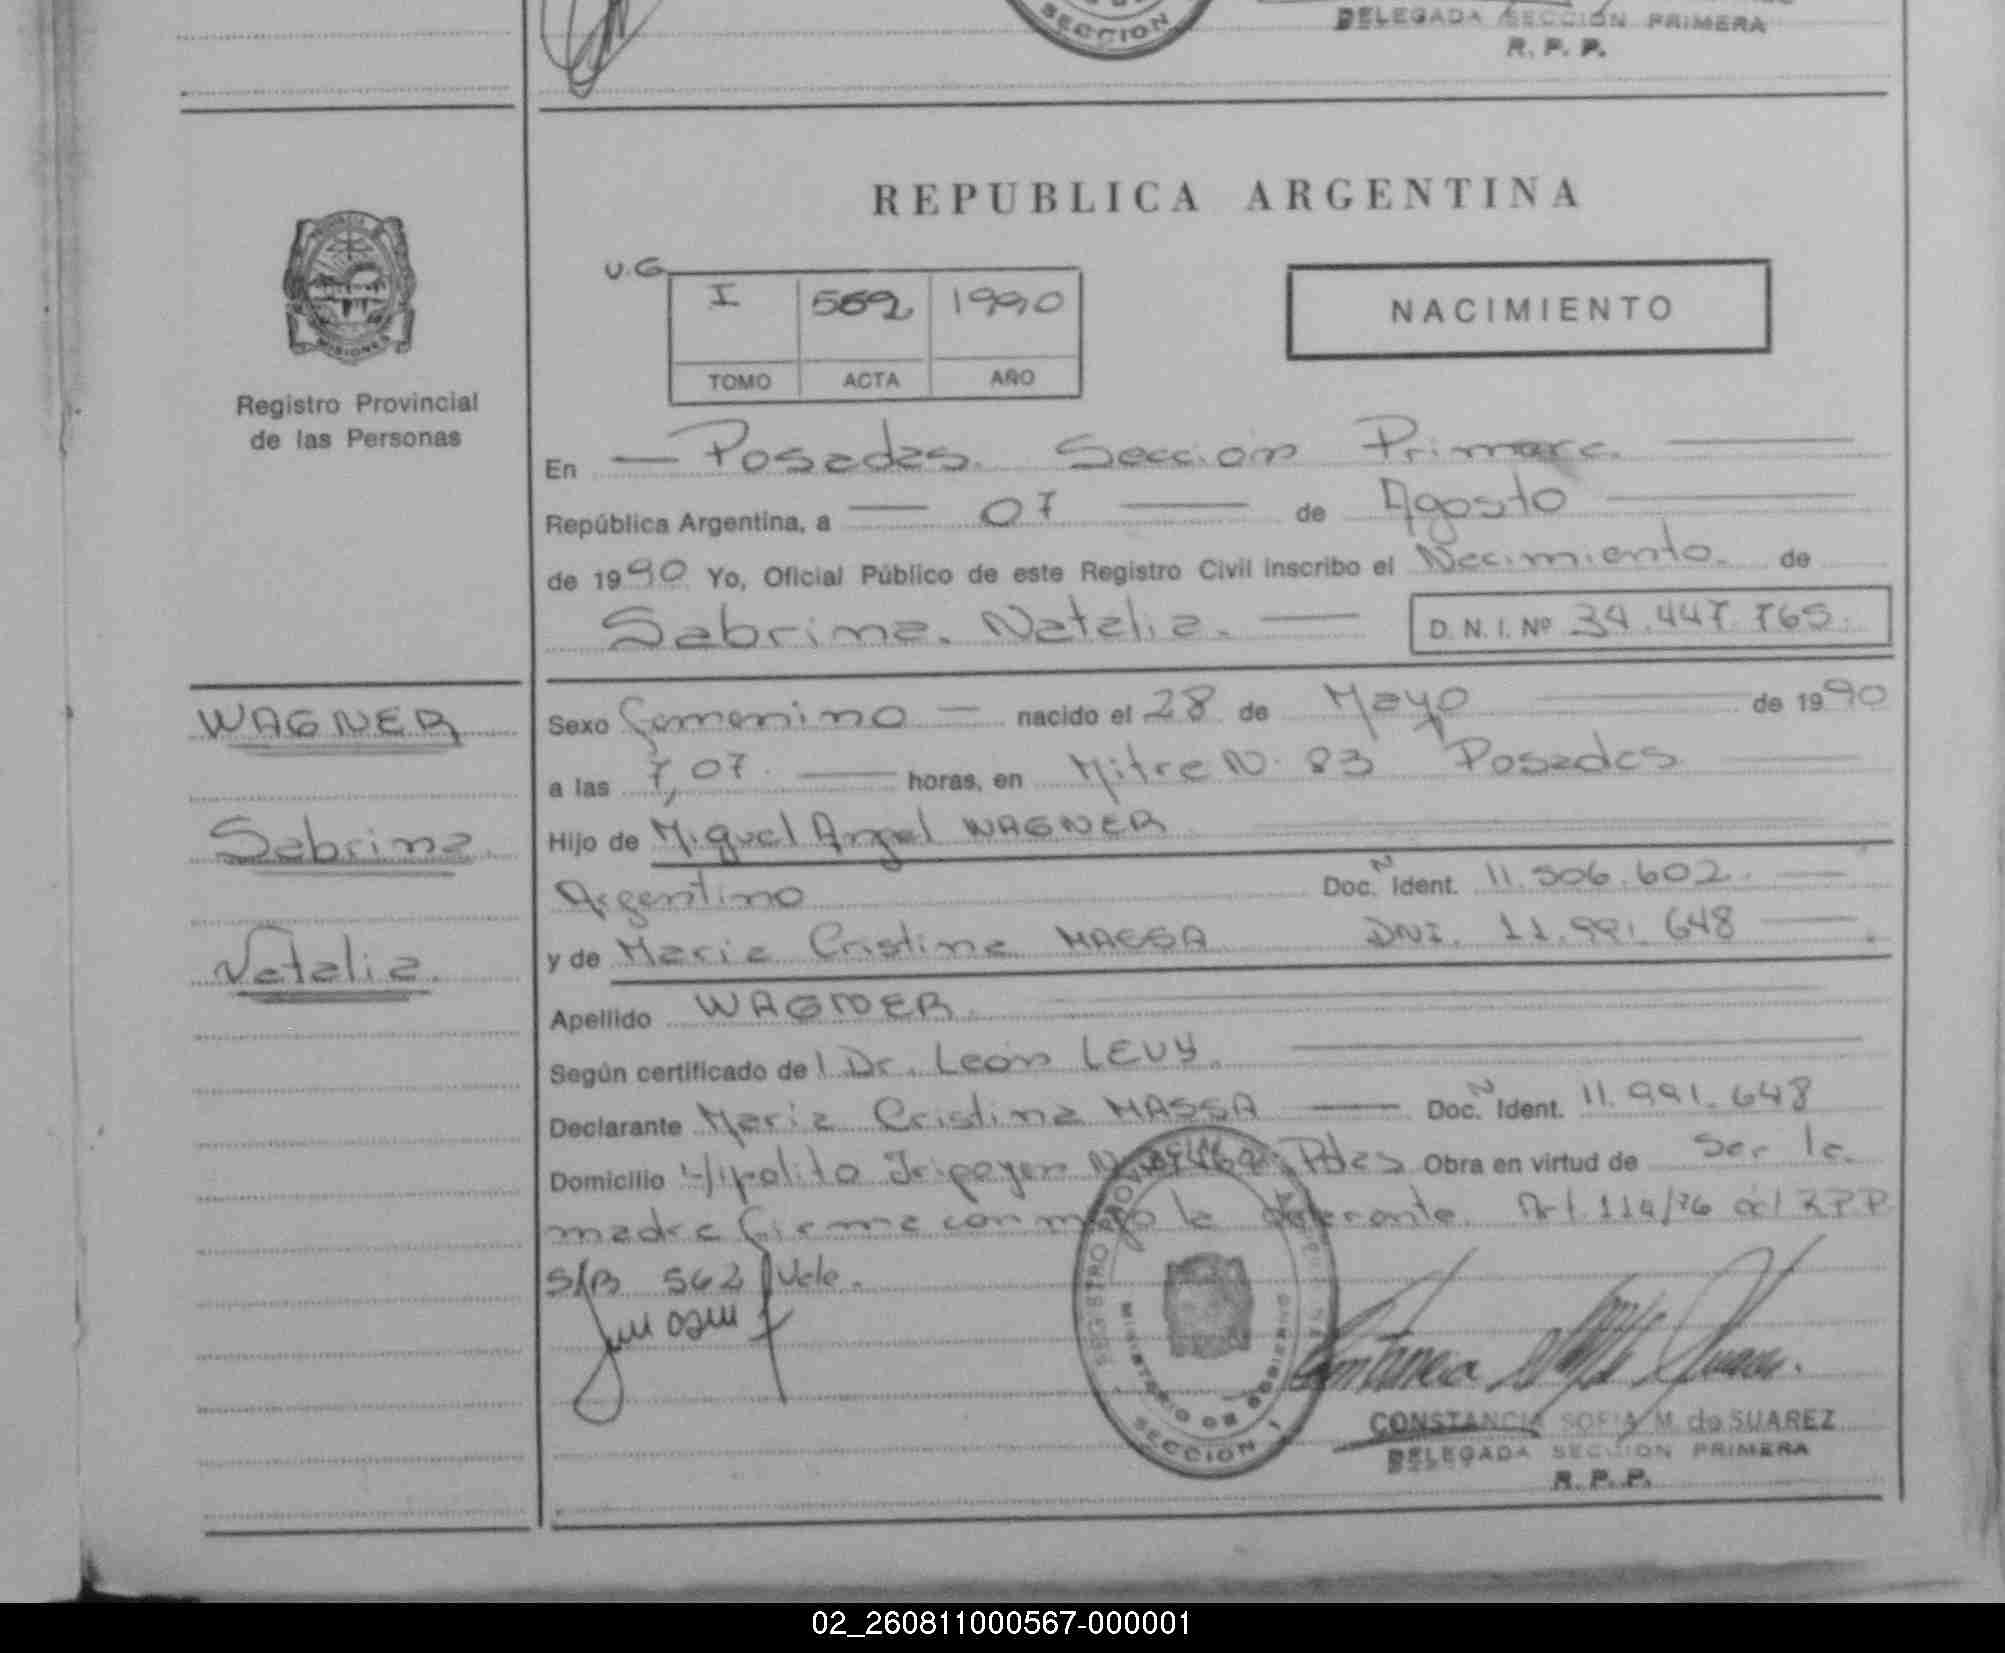 SECCION
DELEGADA SECCION PRIMERA
R. P. P.
REPUBLICA ARGENTINA
U.G.
I 562 1990
TOMO ACTA AÑO
NACIMIENTO
MISIONES
Registro Provincial
de las Personas
En — Posadas. Sección Primera. —
República Argentina, a — 07 — de Agosto —
de 1990 Yo, Oficial Público de este Registro Civil inscribo el Nacimiento. de
Sabrina. Natalia. — D. N. I. Nº 34.447.765.
WAGNER
Sabrina.
Natalia.
Sexo femenino — nacido el 28 de Mayo — de 1990
a las 7,07. — horas, en Mitre N. 83 Posadas —
Hijo de Miguel Angel WAGNER
Argentino Doc. N Ident. 11.506.602. —
y de Maria Cristina MASSA DNI. 11.991.648 —
Apellido WAGNER.
Según certificado de l Dr. León LEVY.
Declarante Maria Cristina MASSA — Doc. N Ident. 11.991.648
Domicilio Hipolito Irigoyen N Pdas Obra en virtud de Ser la
madre firma conmigo la Art. 114/76 del RPP
S/B 562 Vale.
REGISTRO PROVINCIAL DE LAS PERSONAS
MINISTERIO DE GOBIERNO
SECCION 1
CONSTANCIA SOFIA M. de SUAREZ
DELEGADA SECCION PRIMERA
R. P. P.
02_260811000567-000001